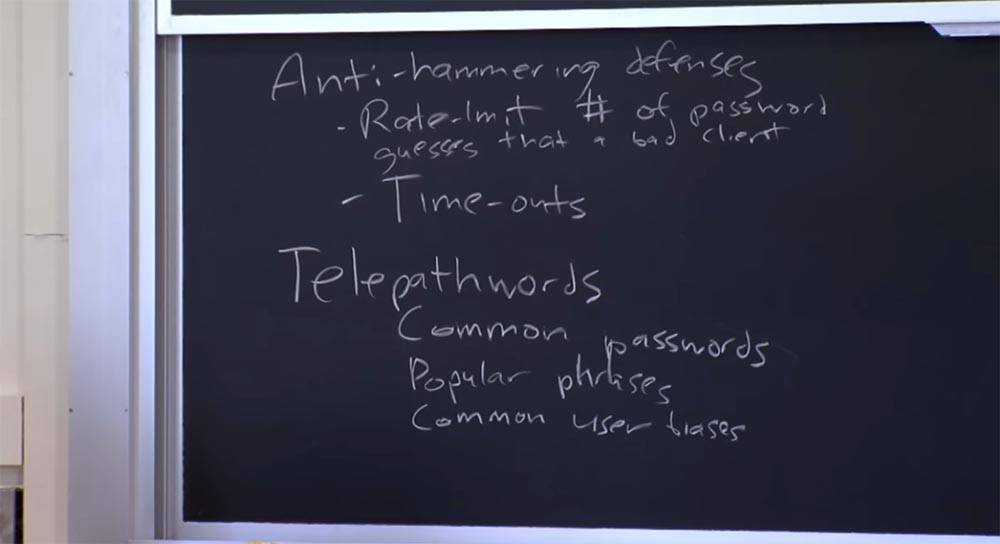 Anti-hammering defenses
- Rate-limit # of password
guesses that a bad client
- Time-outs
Telepathwords
Common passwords
Popular phrases
Common user biases